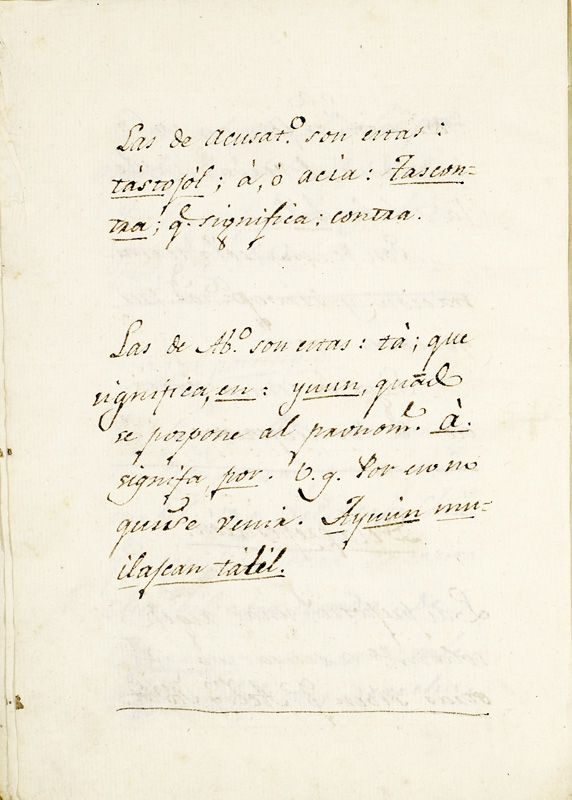 Las de Acusat.º son estas:
tàstojòl; à, ò acia: Tascon-
tra; q.e significa: contra.
Las de Ab.º son estas: tà; que
significa, en: yuun, quãdo
se pospone al pronom.e à.
signifa, por. V. g. Por eso no
quisse venir. Ayuun mu-
ilajcan tàlèl.